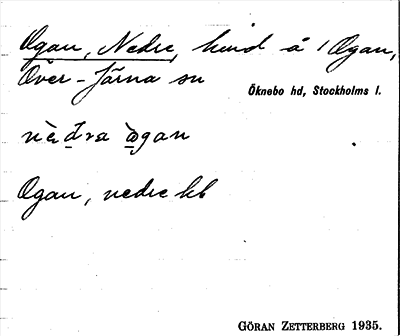 Ogan, Nedre, hmd å / Ogan,
Över-Järna sn
Öknebo hd, Stockholms l.
nèdra ògan
Ogan, nedre kb
GÖRAN ZETTERBERG 1935.